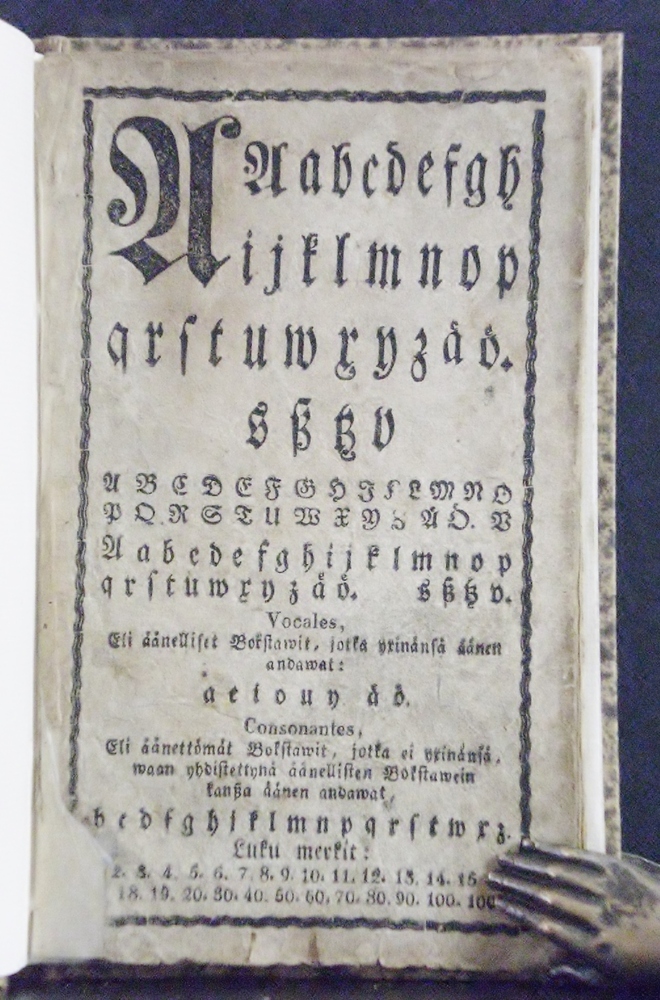 A A a b c d e f g h
i j k l m n o p
q r ſ t u w x y z ä ö.
s ß tz v
A B C D E F G H I K L M N O
P Q R S T U W X Y Z Ä Ö. V
A a b c d e f g h i j k l m n o p
q r ſ t u w x y z ä ö. s ß tz v.
Vocales,
Eli äänelliſet Bokſtawit, jotka yxinänſä äänen
andawat:
a e i o u y ä ö.
Conſonantes,
Eli äänettömät Bokſtawit, jotka ei yxinänſä,
waan yhdiſtettynä äänelliſten Bokſtawein
kanßa äänen andawat,
b c d f g h j k l m n p q r ſ t w x z.
Luku merkit:
2. 3. 4. 5. 6. 7. 8. 9. 10. 11. 12. 13. 14. 15
18. 19. 20. 30. 40. 50. 60. 70. 80. 90. 100.